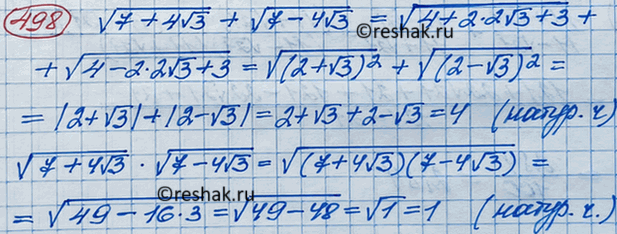 498 √(7+4√3) + √(7-4√3) = √(4+2·2√3+3) +
©reshak.ru
+ √(4-2·2√3+3) = √((2+√3)²) + √((2-√3)²) =
= |2+√3| + |2-√3| = 2+√3+2-√3 = 4 (натур. ч)
√(7+4√3) · √(7-4√3) = √((7+4√3)(7-4√3)) =
©reshak.ru
= √(49-16·3) = √(49-48) = √1 = 1 (натур. ч.)